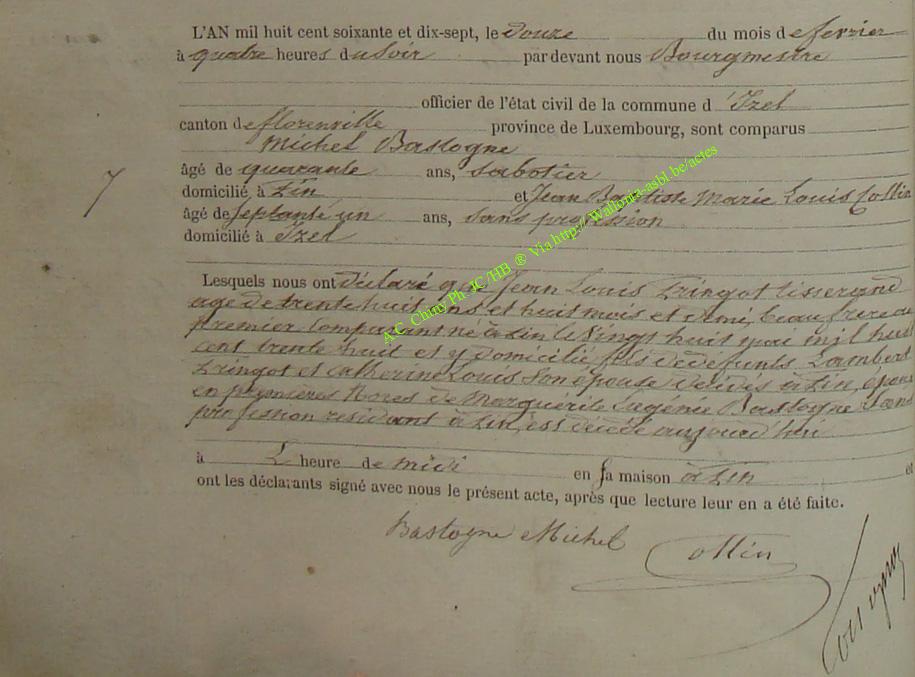 L'AN mil huit cent soixante et dix-sept, le Douze du mois de fevrier
à quatre heures du Soir par devant nous Bourgmestre
officier de l'état civil de la commune d'Izel
canton de florenville province de Luxembourg, sont comparus
Michel Bastogne
âgé de quarante ans, Sabotier
7
domicilié à Pin et Jean Baptiste Marie Louis Collin
âgé de Septante un ans, Sans profession
domicilié à Izel
Lesquels nous ont Déclaré que Jean Louis Pringot tisserand
agé de trente huit ans et huit mois et demi, beau frère au
premier Comparant né à Pin le Vingt huit mai mil huit
cent trente huit et y domicilié, fils de défunts Lambert
Pringot et Catherine Louis Son épouse décédés à Pin, époux
en premières Noces de Marguérite Eugénie Bastogne, Sans
profession residant à Pin, est décédé aujourd'hui
à L heure de midi en Sa maison à Pin et
ont les déclarants signé avec nous le présent acte, après que lecture leur en a été faite.
Bastogne Michel
Collin
A.C. Chiny Ph. JC/HB ® Via http://Wallonia-asbl.be/actes